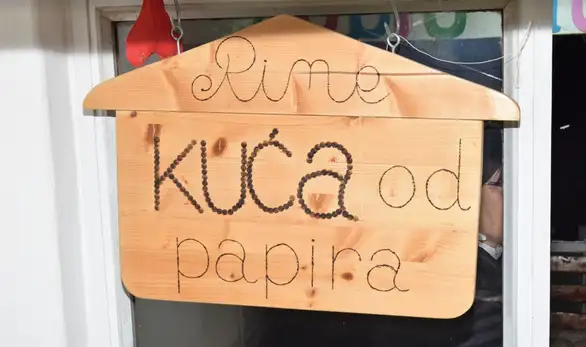 Rime
kuća od
papira